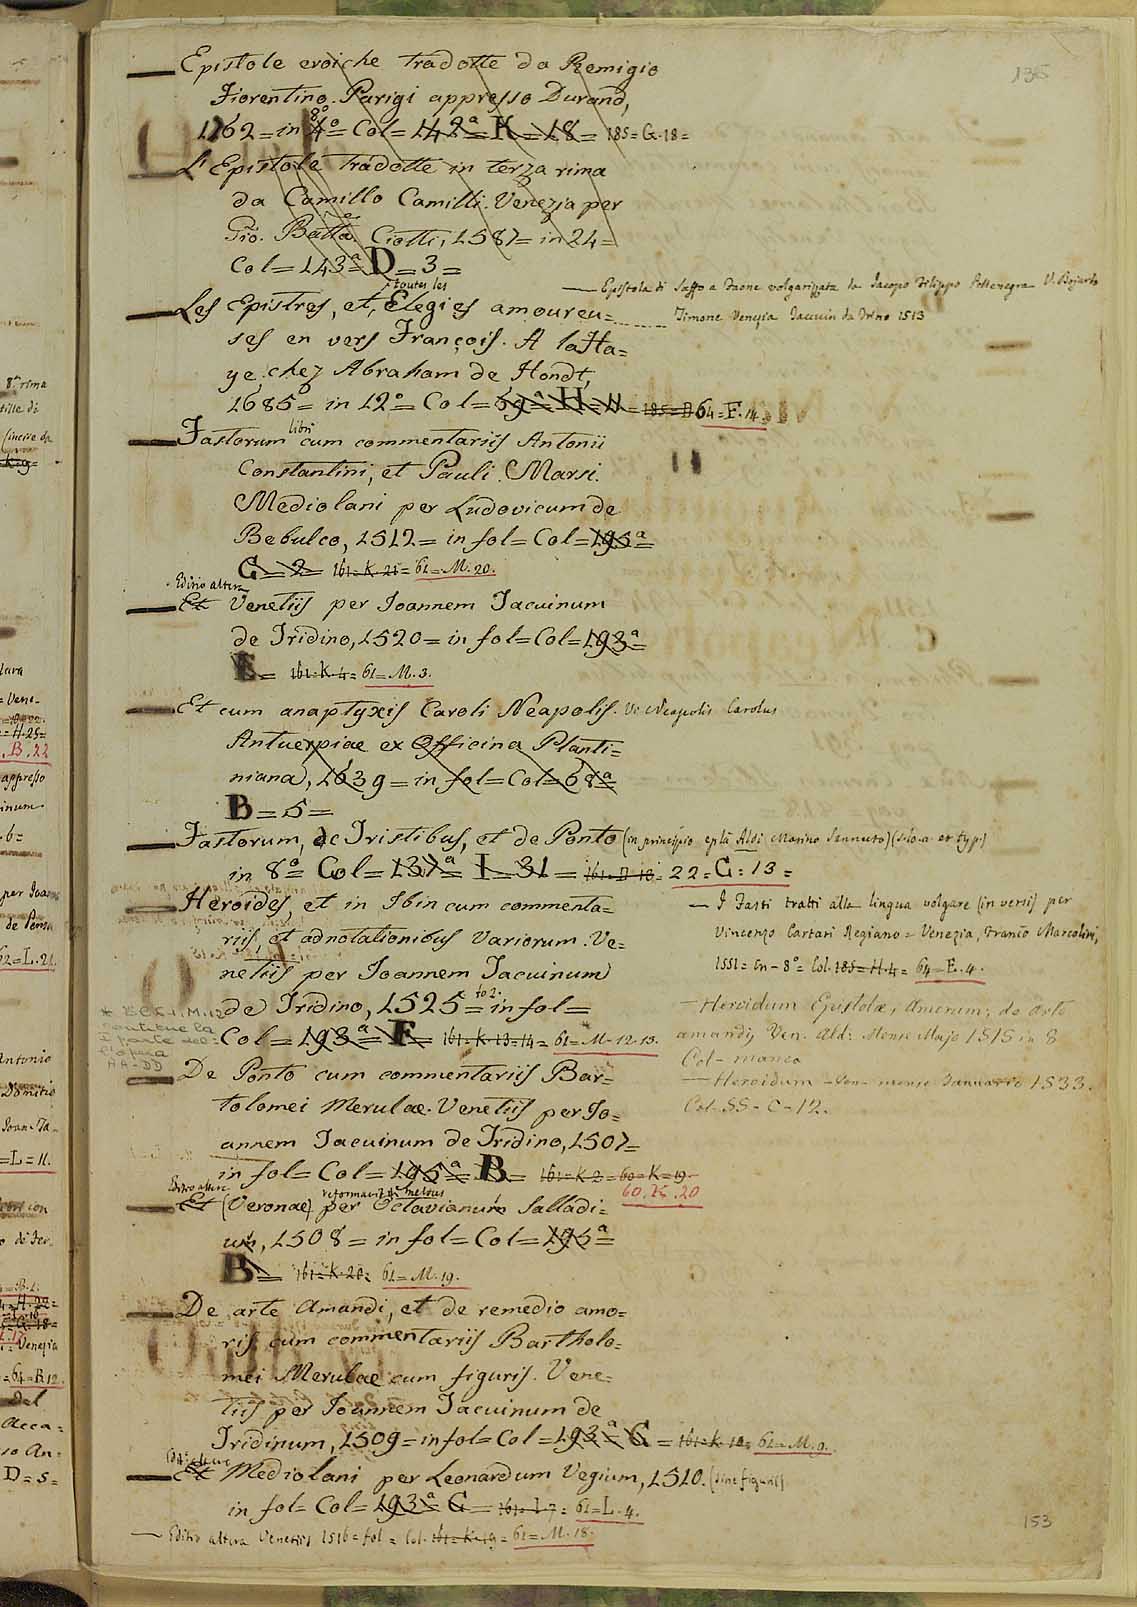 135
Epistole eroiche tradotte da Remigio
Fiorentino. Parigi appresso Durand,
1762 = in 4º 8º = Col = 142ª = K = 18 = 185 = G. 18 =
L'Epistole tradotte in terza rima
da Camillo Camilli. Venezia per
Gio. Batta. Ciotti, 1587 = in 24 =
Col = 143ª = D = 3 =
Les Epistres, et toutes les Elegies amoureu=
ses en vers François. A la Ha=
ye chez Abraham de Hondt,
1685 = in 12º = Col = 69ª = H = 11 = 185 = D 64 = F. 14.
— Epistola di Saffo a Faone volgarizzata da Jacopo Filippo Pellenegra V. Bojardo
Timone Venezia Tacuin da Trino 1513
Fastorum libri cum commentariis Antonii
Constantini, et Pauli Marsi.
Mediolani per Ludovicum de
Bebulco, 1512 = in fol = Col = 195ª =
G = 2 = 161 = K. 21 = 61 = M. 20.
Editio altera
Et Venetiis per Joannem Tacuinum
de Tridino, 1520 = in fol = Col = 193ª =
E = 161 = K. 4 = 61 = M. 3.
Et cum anaptyxis Caroli Neapolis. V. Neapolis Carolus
Antuerpiae ex Officina Planti=
niana, 1639 = in fol = Col = 68ª =
B = 5 =
Fastorum, de Tristibus, et de Ponto (in principio epla Aldi Marino Sannuto) (s. lo. a. et typ.)
in 8º = Col = 137ª = I = 31 = 161 = D 18 = 22 = G = 13 =
Heroides, et in Ibin cum commenta=
riis, et adnotationibus Variorum. Ve=
netiis per Joannem Tacuinum
de Tridino, 1525 to 2. = in fol =
Col = 193ª = F = 161 = K = 13 = 14 = 61 = M. 12. 13.
— I Fasti tratti alla lingua volgare (in versi) per
Vincenzo Cartari Regiano = Venezia, Franco Marcolini,
1551 = in = 8º = Col. 185 = H. 4 = 64 = E. 4.
— Heroidum Epistolæ, Amorum, de Arte
amandi, Ven. Ald: Mense Majo 1515 in 8
Col = manca
— Heroidum - Ven. mense Januario 1533.
Col. SS - C - 12.
M. 12
contiene la
parte del=
l'opera
AA-DD
De Ponto cum commentariis Bar=
tolomei Merulae. Venetiis per Jo=
annem Tacuinum de Tridino, 1507 =
in fol = Col = 195ª = B = 161 = K 2 = 60 = K = 19
60. K. 20
Editio altera
Et (Veronae) per Octavianum Salladi=
um, 1508 = in fol = Col = 195ª =
B = 161 = K. 20 = 61 = M. 19.
De arte Amandi, et de remedio amo=
ris cum commentariis Bartholo=
mei Merulae cum figuris. Vene=
tiis per Joannem Tacuinum de
Tridinum, 1509 = in fol = Col = 193ª = G = 161 = K. 10 = 61 = M. 9.
Editio altera
Et Mediolani per Leonardum Vegium, 1510. (sine figuris)
in fol = Col = 193ª = G = 161 = I. 7 = 61 = L. 4.
— Editio altera Venetiis 1516 = fol = Col. 161 = K. 19 = 61 = M. 18.
153